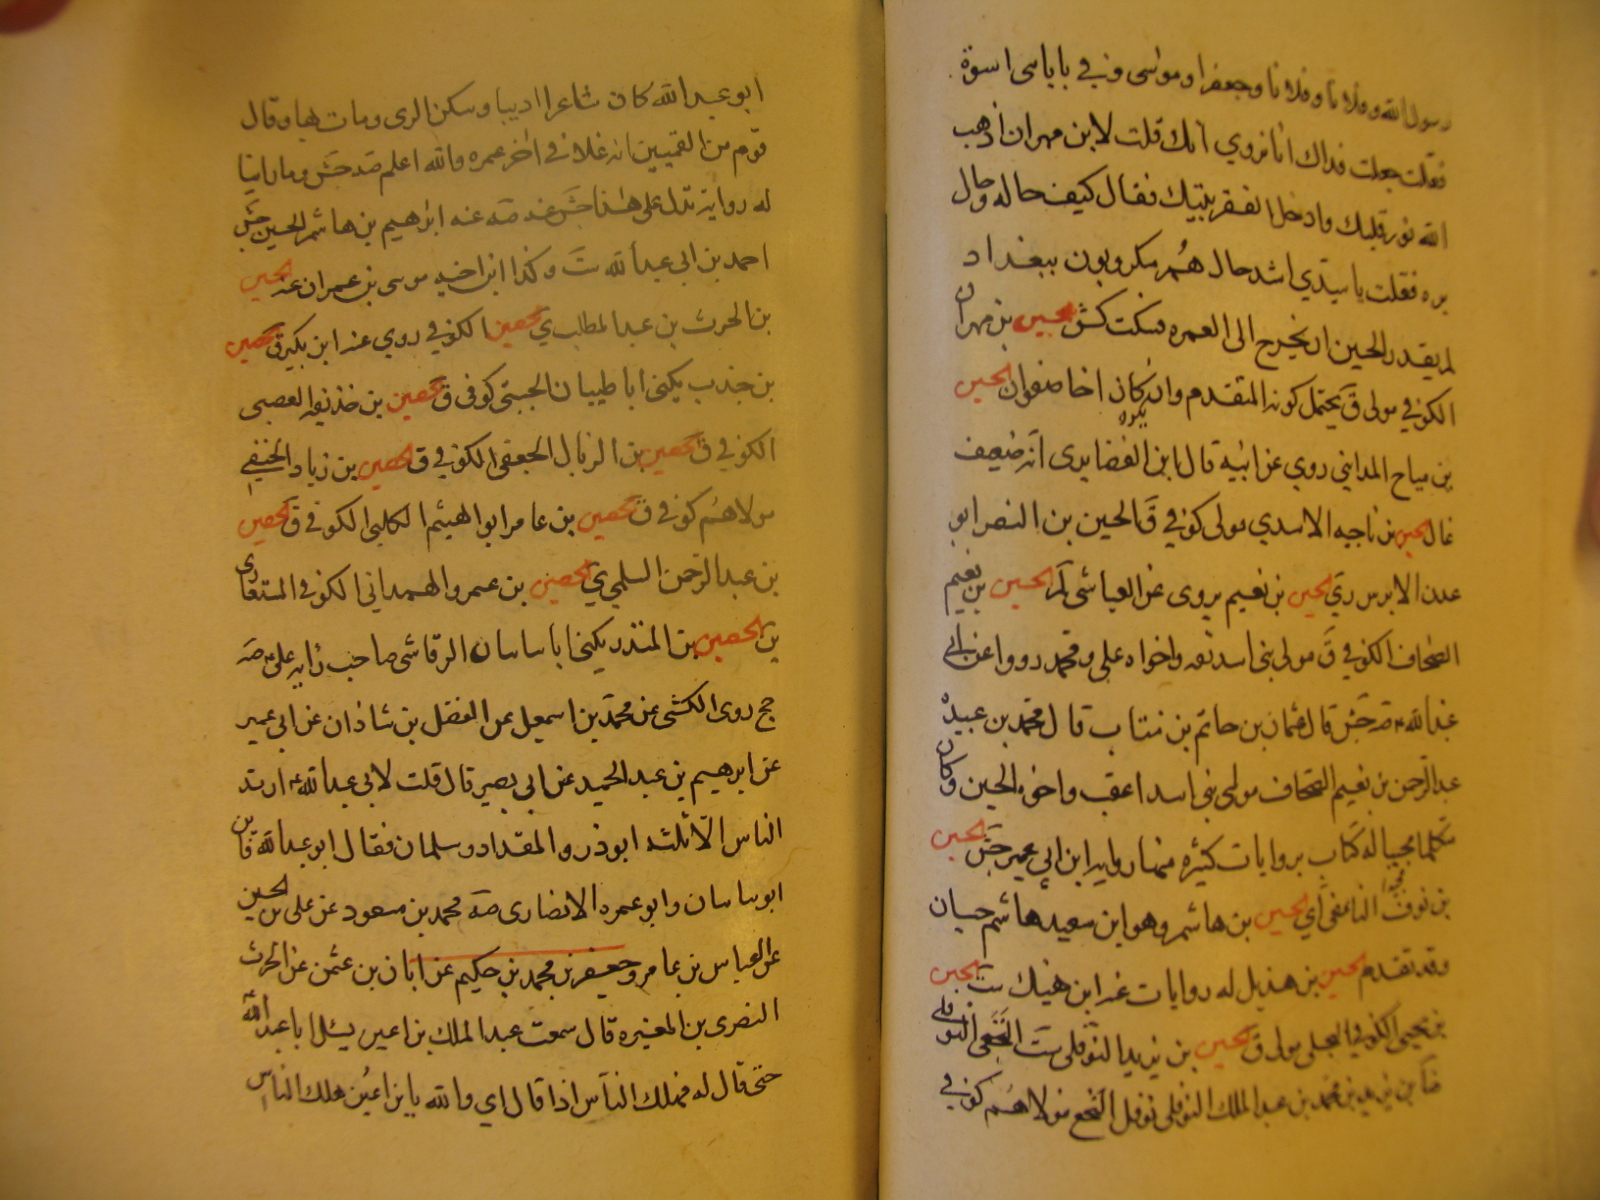 رسول الله وفلانا وفلانا وجعفرا وموسى وفي باباى اسوة
فقلت جعلت فداك انا نروي انك قلت لابن مهران اذهب
الله نور قلبك وادخل الفقر بيتك فقال كيف حاله وحال
بره فقلت يا سيدي اشد حال هم مكروبون ببغداد
لم يقدر الحسين ان يخرج الى العمره فسكت كش الحسين بن مهران
الكوفي مولى ق يحتمل كونه المتقدم وان يكون اخا صفوان الحسين
بن مياح المدايني روي عن ابيه قال ابن الغضايرى انه ضعيف
غال الحسين بن ناجيه الاسدي مولى كوفي ق الحسين بن النصر ابو
الابرس ري الحسين بن نعيم يروى عن العياشي الحسين بن نعيم
الصحاف الكوفي ق مولى بني اسد ثقه واخواه علي ومحمد رووا عن ابي
عبد الله قال عثمان بن حاتم بن منتاب قال محمد بن عبيده
عبد الرحمن بن نعيم الصحاف مولى بني اسد اعقب واخوه الحسين وكان
متكلما مجيبا له كتاب بروايات كثيره منها رواية ابن ابي عمير جش الحسين
بن نوف الحسين بن هاشم وهو ابن سعيد هاشم حيان
وقد تقدم الحسين بن هذيل له روايات عنه ابن هنيك ست الحسين
بن يحيى الكوفي البجلي مولى ق الحسين بن يزيد النوفلي ست النخعي النوفلي
بن يزيد بن محمد بن عبد الملك النوفلي نوفل النخع مولاهم كوفي
ابو عبد الله كان شاعرا اديبا وسكن الرى ومات بها وقال
قوم من القميين انه غلا في اخر عمره والله اعلم جش وما راينا
له رواية تدل على هذا جش عنه ابرهيم بن هاشم الحسين جش
احمد بن ابي عبد الله ست وكذا ابن اخيه موسى بن عمران عنه الحسين
بن الحرث بن عبد المطلب ي الحصين الكوفي روي عنه ابن بكير ق الحصين
بن جندب يكنى ابا ظبيان الجنبي كوفى ق الحصين بن خذنفه العصبى
الكوفي ق الحصين بن الزبال الجعفى الكوفي ق الحصين بن زياد الحنفي
مولاهم كوفي ق الحصين بن عامر ابو الهيثم الكلبي الكوفي ق الحصين
بن عبد الرحمن السلمي ي الحصين بن عمرو الهمداني الكوفي
بن الحصين بن المنذر يكنى ابا ساسان الرقاشي صاحب رايه علي
جخ روى الكشى عن محمد بن اسمعيل عن الفضل بن شاذان عن ابي عمير
عن ابرهيم بن عبد الحميد عن ابي بصير قال قلت لابي عبد الله ارتد
الناس الا ثلثه ابوذر والمقداد وسلمان فقال ابو عبد الله فاين
ابو ساسان وابو عمره الانصارى محمد بن مسعود عن علي بن الحسين
عن العباس بن عامر وجعفر بن محمد بن حكيم عن ابان بن عثمن عن الحرث
النصرى بن المغيره قال سمعت عبد الملك بن اعين يسئل ابا عبد الله
حتى قال له فهلك الناس اذا قال اي والله يا بن اعين هلك الناس